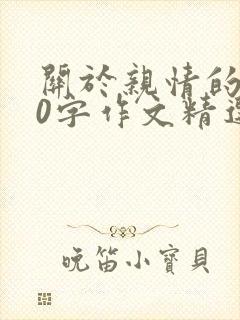 關於親情的
0字作文精選
晚笛小寶貝